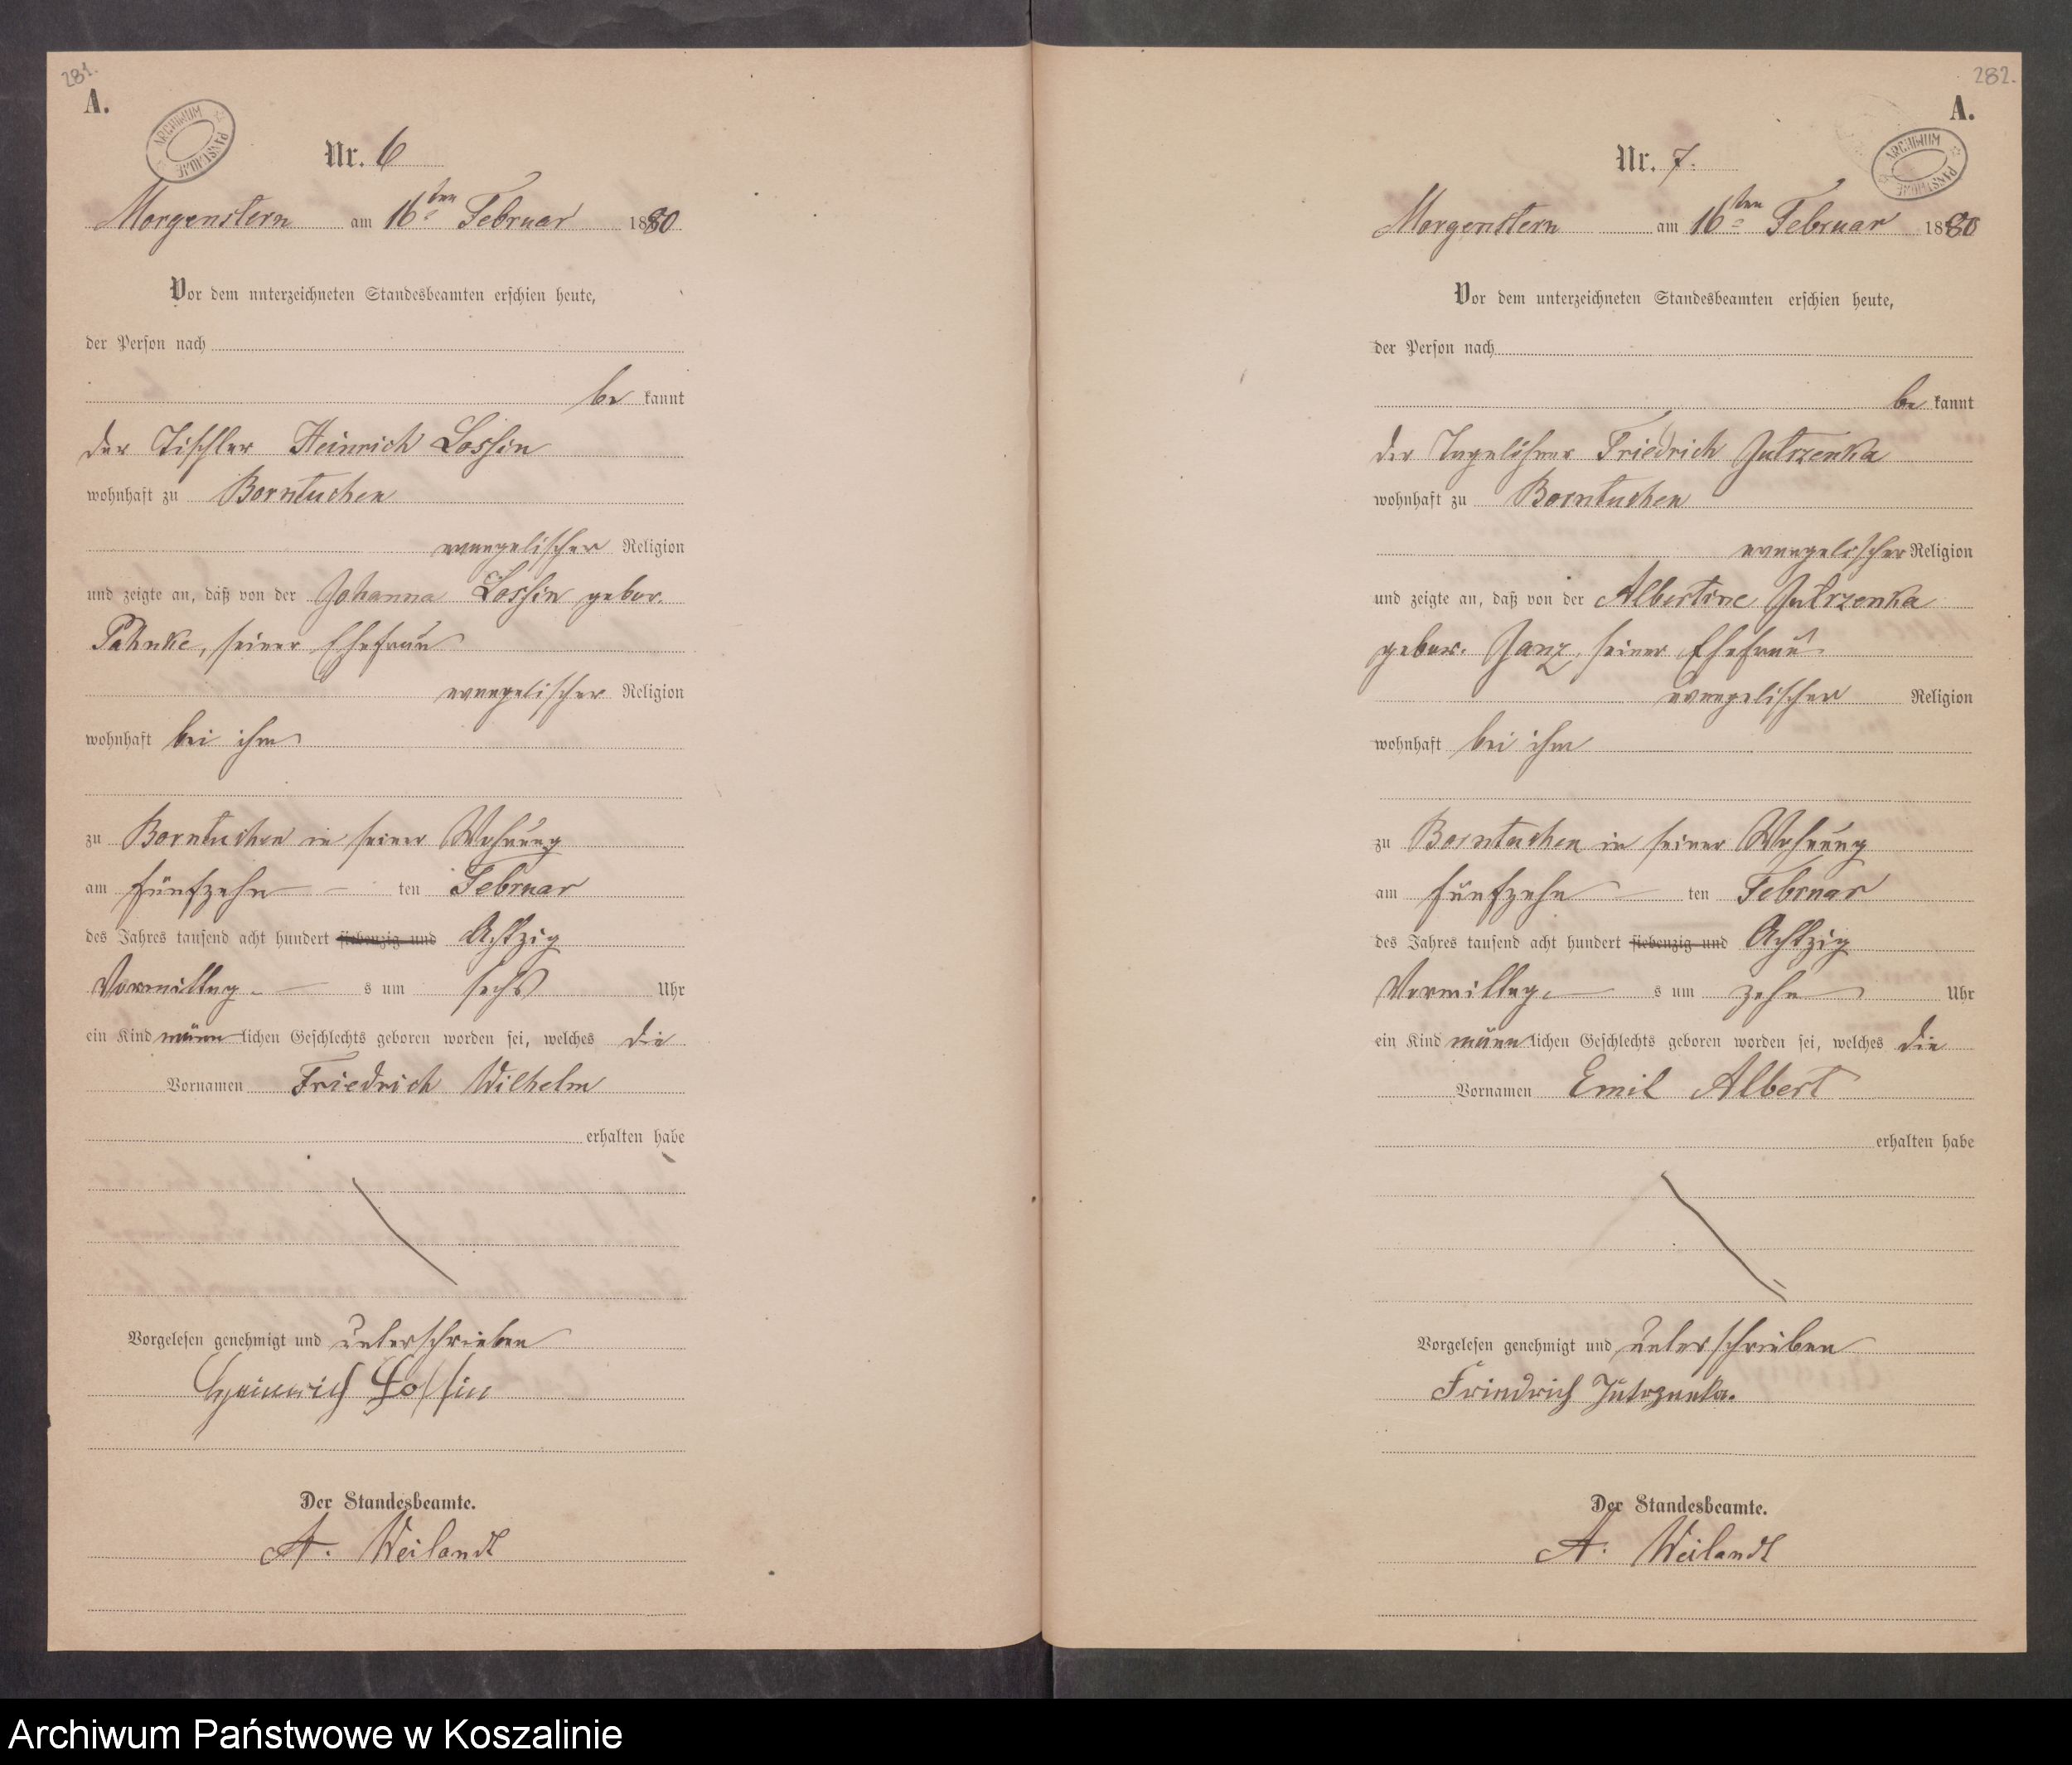 281.
A.
ARCHIWUM PAŃSTWOWE
Nr. 6
Morgenstern am 16ten Februar 1880
Vor dem unterzeichneten Standesbeamten erschien heute,
der Person nach
be kannt
der Tischler Heinrich Lossin
wohnhaft zu Borntuchen
evangelischer Religion
und zeigte an, daß von der Johanna Lossin gebor.
Pahnke, seiner Ehefrau
evangelischer Religion
wohnhaft bei ihm
zu Borntuchen in seiner Wohnung
am fünfzehn ten Februar
des Jahres tausend acht hundert siebenzig und Achtzig
Vormittag s um sechs Uhr
ein Kind männlichen Geschlechts geboren worden sei, welches die
Vornamen Friedrich Wilhelm
erhalten habe
Vorgelesen genehmigt und unterschrieben
Heinrich Lossin
Der Standesbeamte.
A. Weilandt
282.
A.
ARCHIWUM PAŃSTWOWE
Nr. 7.
Morgenstern am 16ten Februar 1880
Vor dem unterzeichneten Standesbeamten erschien heute,
der Person nach
be kannt
der Tagelöhner Friedrich Jutrzenka
wohnhaft zu Borntuchen
evangelischer Religion
und zeigte an, daß von der Albertine Jutrzenka
gebor. Janz, seiner Ehefrau
evangelischer Religion
wohnhaft bei ihm
zu Borntuchen in seiner Wohnung
am fünfzehn ten Februar
des Jahres tausend acht hundert siebenzig und Achtzig
Vormittag s um zehn Uhr
ein Kind männlichen Geschlechts geboren worden sei, welches die
Vornamen Emil Albert
erhalten habe
Vorgelesen genehmigt und unterschrieben
Friedrich Jutrzenka.
Der Standesbeamte.
A. Weilandt
Archiwum Państwowe w Koszalinie